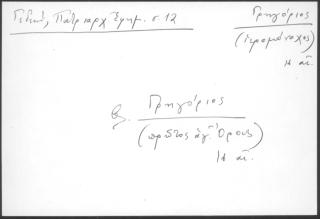 Γεδεών, Πατριαρχ. Ἐφημ. σ. 12
Γρηγόριος
(ἱερομόναχος)
ΙΔ αἰ.
βλ. Γρηγόριος
(πρῶτος ἁγ. Ὄρους)
ΙΔ αἰ.